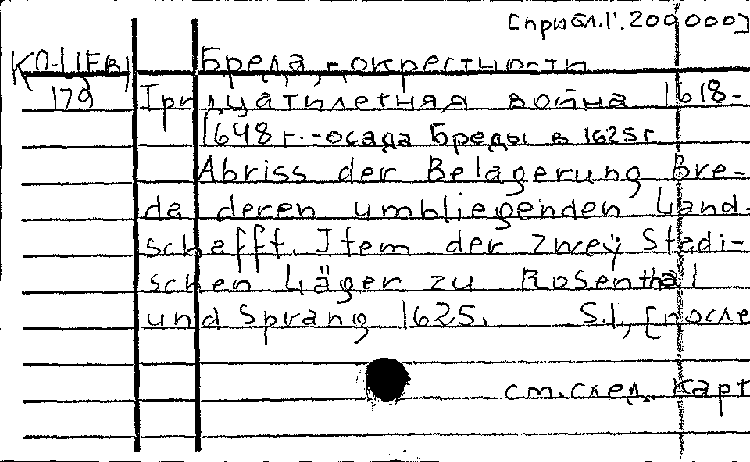 [прибл. 1:200000]
Бреда, - окрестности
179 Тридцатилетняя война 1618-
1648 г. - осада Бреды в 1625 г.
Abriss der Belagerung Bre-
da deren umbliegenden Land-
schafft. Item der zweÿ Stedi-
schen Läger zu Rosenthal
und Sprang 1625. S.l., [после
см. след. карт